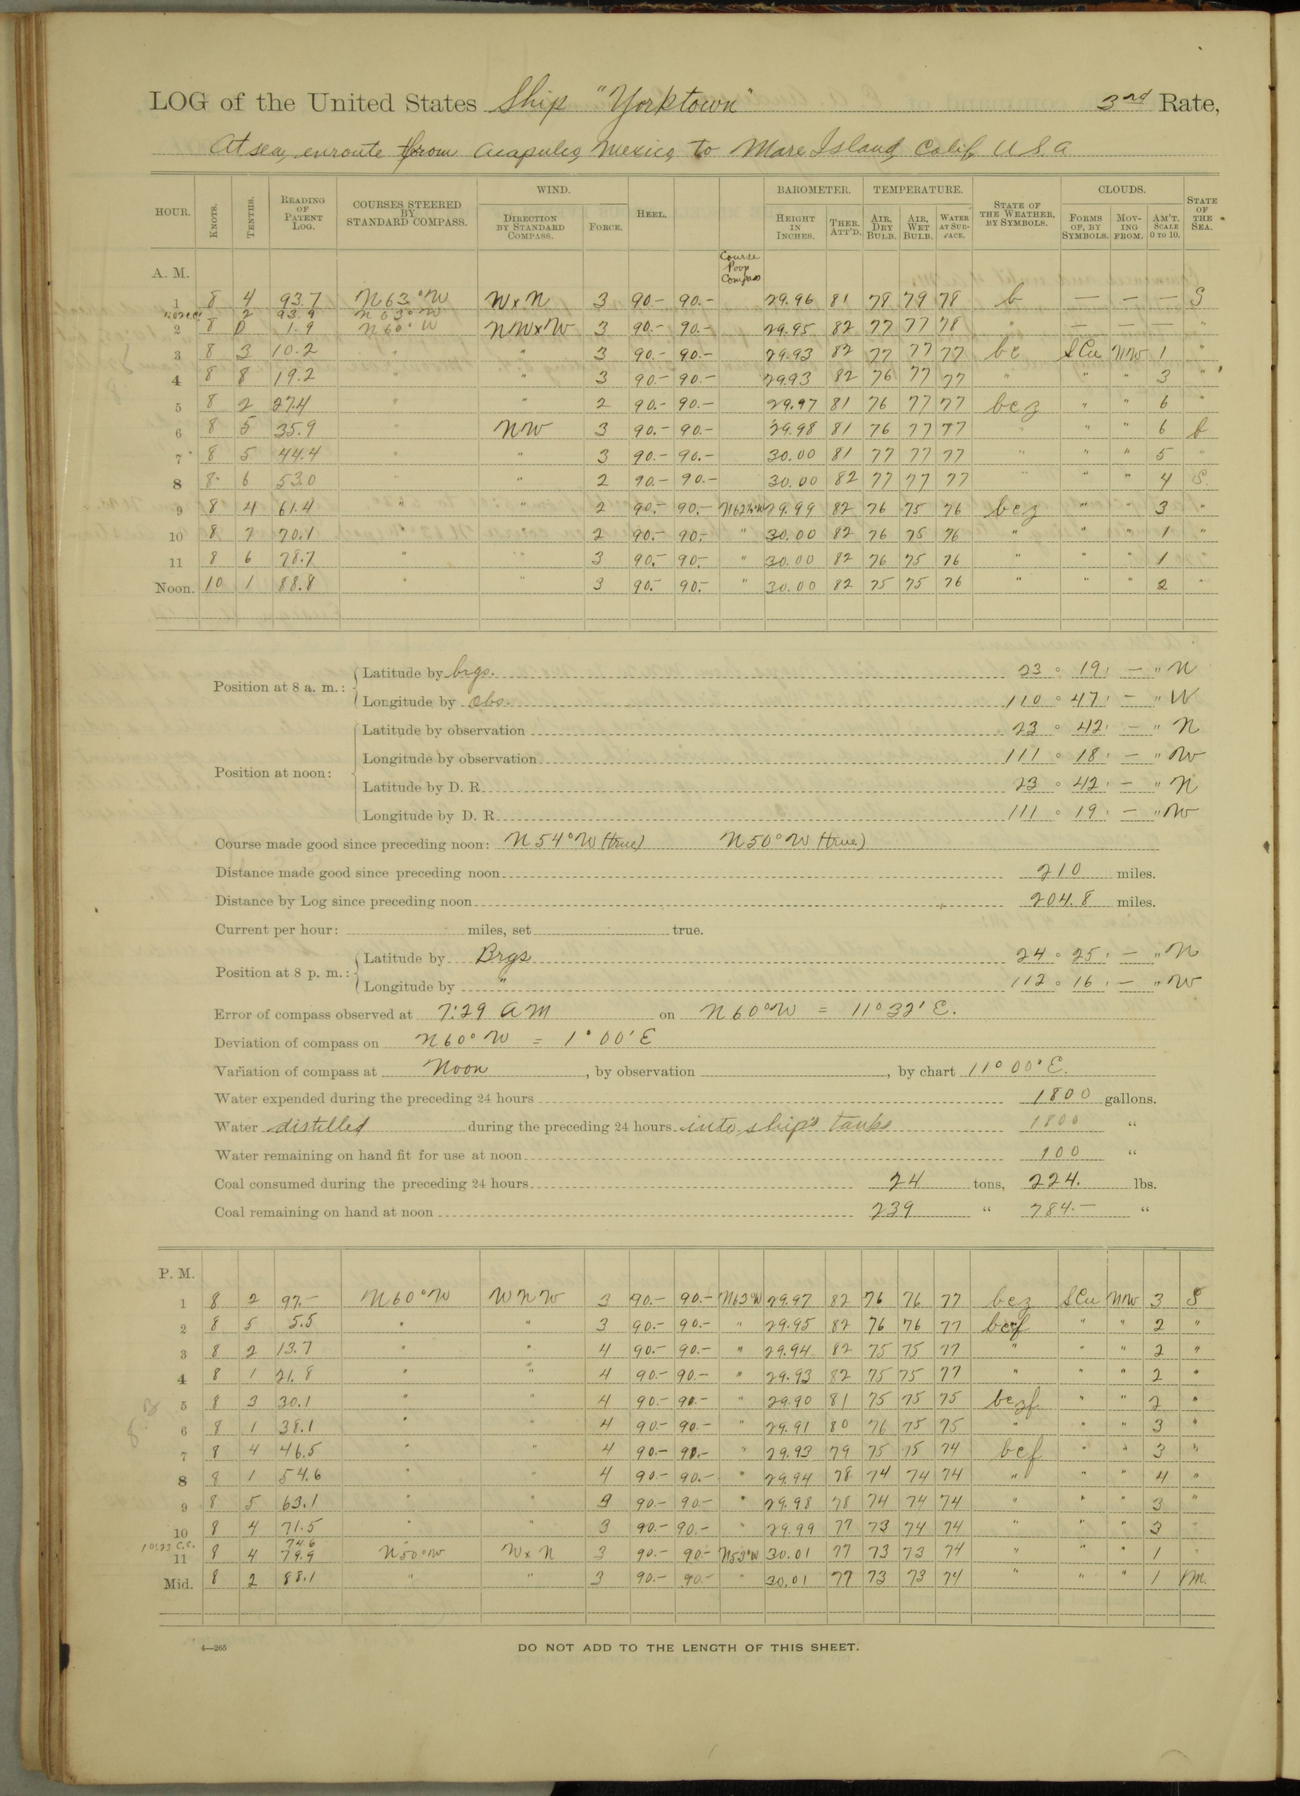 LOG of the United States Ship "Yorktown" 3rd Rate,
At sea, enroute from Acapulco, Mexico, to Mare Island, Calif. U.S.A
HOUR. KNOTS. TENTHS. READING OF PATENT LOG. COURSES STEERED BY STANDARD COMPASS. WIND. DIRECTION BY STANDARD COMPASS. FORCE. HEEL. BAROMETER. HEIGHT IN INCHES. THER. ATT'D. TEMPERATURE. AIR, DRY BULB. AIR, WET BULB. WATER AT SURFACE. STATE OF THE WEATHER, BY SYMBOLS. CLOUDS. FORMS OF, BY SYMBOLS. MOVING FROM. AM'T. SCALE 0 TO 10. STATE OF THE SEA.
A. M. Course Poop Compass
1 8 4 93.7 N 63° W W x N 3 90.- 90.- 29.96 81 78 79 78 b — — — S
2 93.9 N 63° W
2 8 0 1.9 N 60° W NW x W 3 90.- 90.- 29.95 82 77 77 78 " — — — "
3 8 3 10.2 " " 3 90.- 90.- 29.93 82 77 77 77 bc SCu NW 1 "
4 8 8 19.2 " " 3 90.- 90.- 29.93 82 76 77 77 " " " 3 "
5 8 2 27.4 " " 2 90.- 90.- 29.97 81 76 77 77 bcz " " 6 "
6 8 5 35.9 " NW 3 90.- 90.- 29.98 81 76 77 77 " " " 6 b
7 8 5 44.4 " " 3 90.- 90.- 30.00 81 77 77 77 " " " 5 "
8 8 6 53.0 " " 2 90.- 90.- 30.00 82 77 77 77 " " " 4 S.
9 8 4 61.4 " " 2 90.- 90.- N62½°W 29.99 82 76 75 76 bcz " " 3 "
10 8 7 70.1 " " 2 90.- 90.- " 30.00 82 76 75 76 " " " 1 "
11 8 6 78.7 " " 3 90.- 90.- " 30.00 82 76 75 76 " " " 1 "
Noon. 10 1 88.8 " " 3 90.- 90.- " 30.00 82 75 75 76 " " " 2 "
Position at 8 a. m.: Latitude by brgs. 23 ° 19 ' — " N
Longitude by obs. 110 ° 47 ' — " W
Position at noon: Latitude by observation 23 ° 42 ' — " N
Longitude by observation 111 ° 18 ' — " W
Latitude by D. R. 23 ° 42 ' — " N
Longitude by D. R. 111 ° 19 ' — " W
Course made good since preceding noon: N 54° W (true) N 50° W (true)
Distance made good since preceding noon 210 miles.
Distance by Log since preceding noon 204.8 miles.
Current per hour: miles, set true.
Position at 8 p. m.: Latitude by Brgs 24 ° 25 ' — " N
Longitude by " 112 ° 16 ' — " W
Error of compass observed at 7:29 AM on N 60° W = 11° 32' E.
Deviation of compass on N 60° W = 1° 00' E
Variation of compass at Noon , by observation , by chart 11° 00' E.
Water expended during the preceding 24 hours 1800 gallons.
Water distilled during the preceding 24 hours into ship's tanks 1800 "
Water remaining on hand fit for use at noon 100 "
Coal consumed during the preceding 24 hours 24 tons, 224. lbs.
Coal remaining on hand at noon 239 " 784.— "
P. M.
1 8 2 97.- N 60° W WNW 3 90.- 90.- N63°W 29.97 82 76 76 77 bcz SCu NW 3 S
2 8 5 5.5 " " 3 90.- 90.- " 29.95 82 76 76 77 bcf " " 2 "
3 8 2 13.7 " " 4 90.- 90.- " 29.94 82 75 75 77 " " " 2 "
4 8 1 21.8 " " 4 90.- 90.- " 29.93 82 75 75 77 " " " 2 "
5 8 3 30.1 " " 4 90.- 90.- " 29.90 81 75 75 75 bczf " " 2 "
6 8 1 38.1 " " 4 90.- 90.- " 29.91 80 76 75 75 " " " 3 "
7 8 4 46.5 " " 4 90.- 90.- " 29.93 79 75 75 74 bcf " " 3 "
8 8 1 54.6 " " 4 90.- 90.- " 29.94 78 74 74 74 " " " 4 "
9 8 5 63.1 " " 3 90.- 90.- " 29.98 78 74 74 74 " " " 3 "
10 8 4 71.5 " " 3 90.- 90.- " 29.99 77 73 74 74 " " " 3 "
10:23 C.C. 74.6
11 8 4 79.9 N 50° W W x N 3 90.- 90.- N53°W 30.01 77 73 73 74 " " " 1 "
Mid. 8 2 88.1 " " 3 90.- 90.- " 30.01 77 73 73 74 " " " 1 M.
4—265 DO NOT ADD TO THE LENGTH OF THIS SHEET.